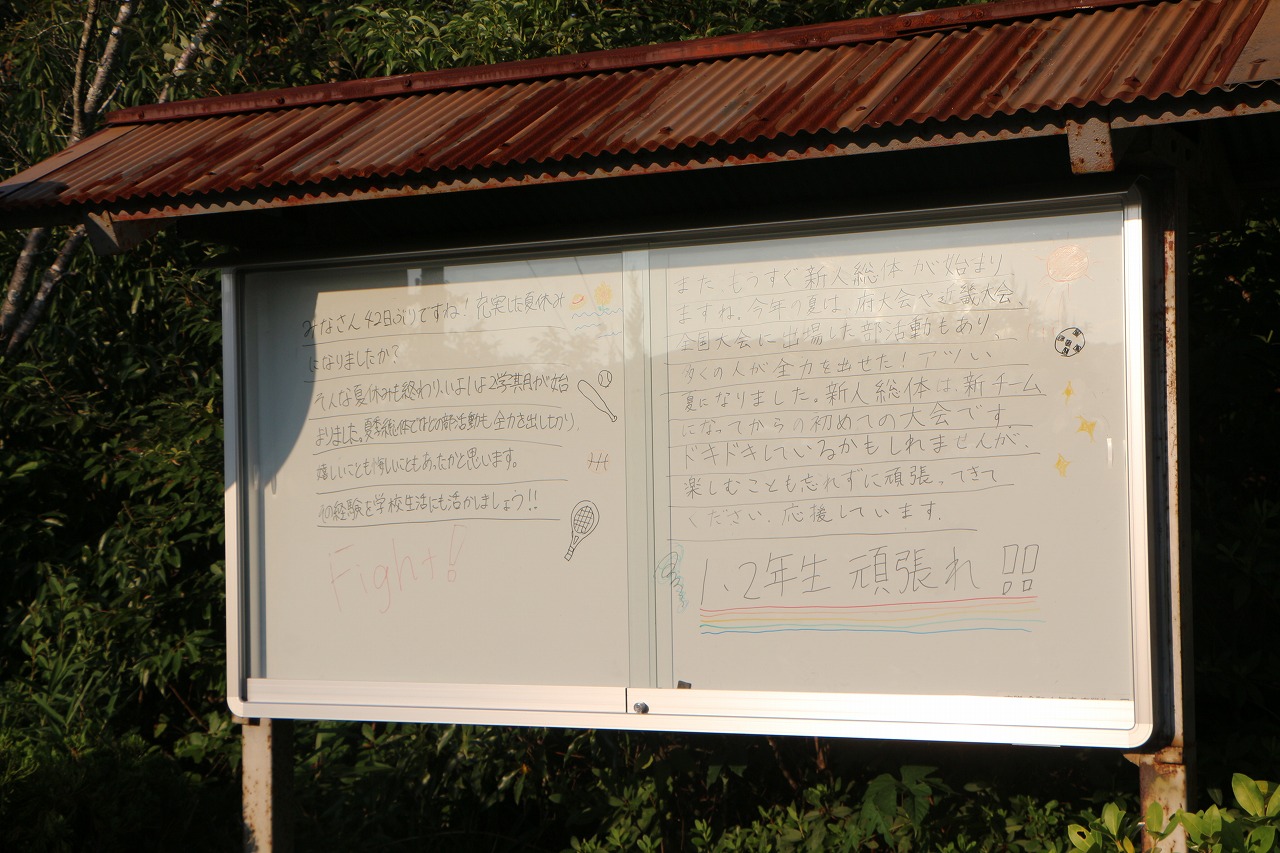 みなさん42日ぶりですね！充実した夏休み
になりましたか？
そんな夏休みも終わり、いよいよ2学期が始
まりました。夏季総体などの部活動も全力を出したかり、
嬉しいことも悔しいこともあったかと思います。
その経験を学校生活にも活かしましょう!!
Fight!
また、もうすぐ新人総体が始まり
ますね。今年の夏は、府大会や近畿大会、
全国大会に出場した部活動もあり、
多くの人が全力を出せた！アツい
夏になりました。新人総体は、新チーム
になってからの初めての大会です。
ドキドキしているかもしれませんが、
楽しむことも忘れずに頑張ってきて
ください。応援しています。
1、2年生 頑張れ!!